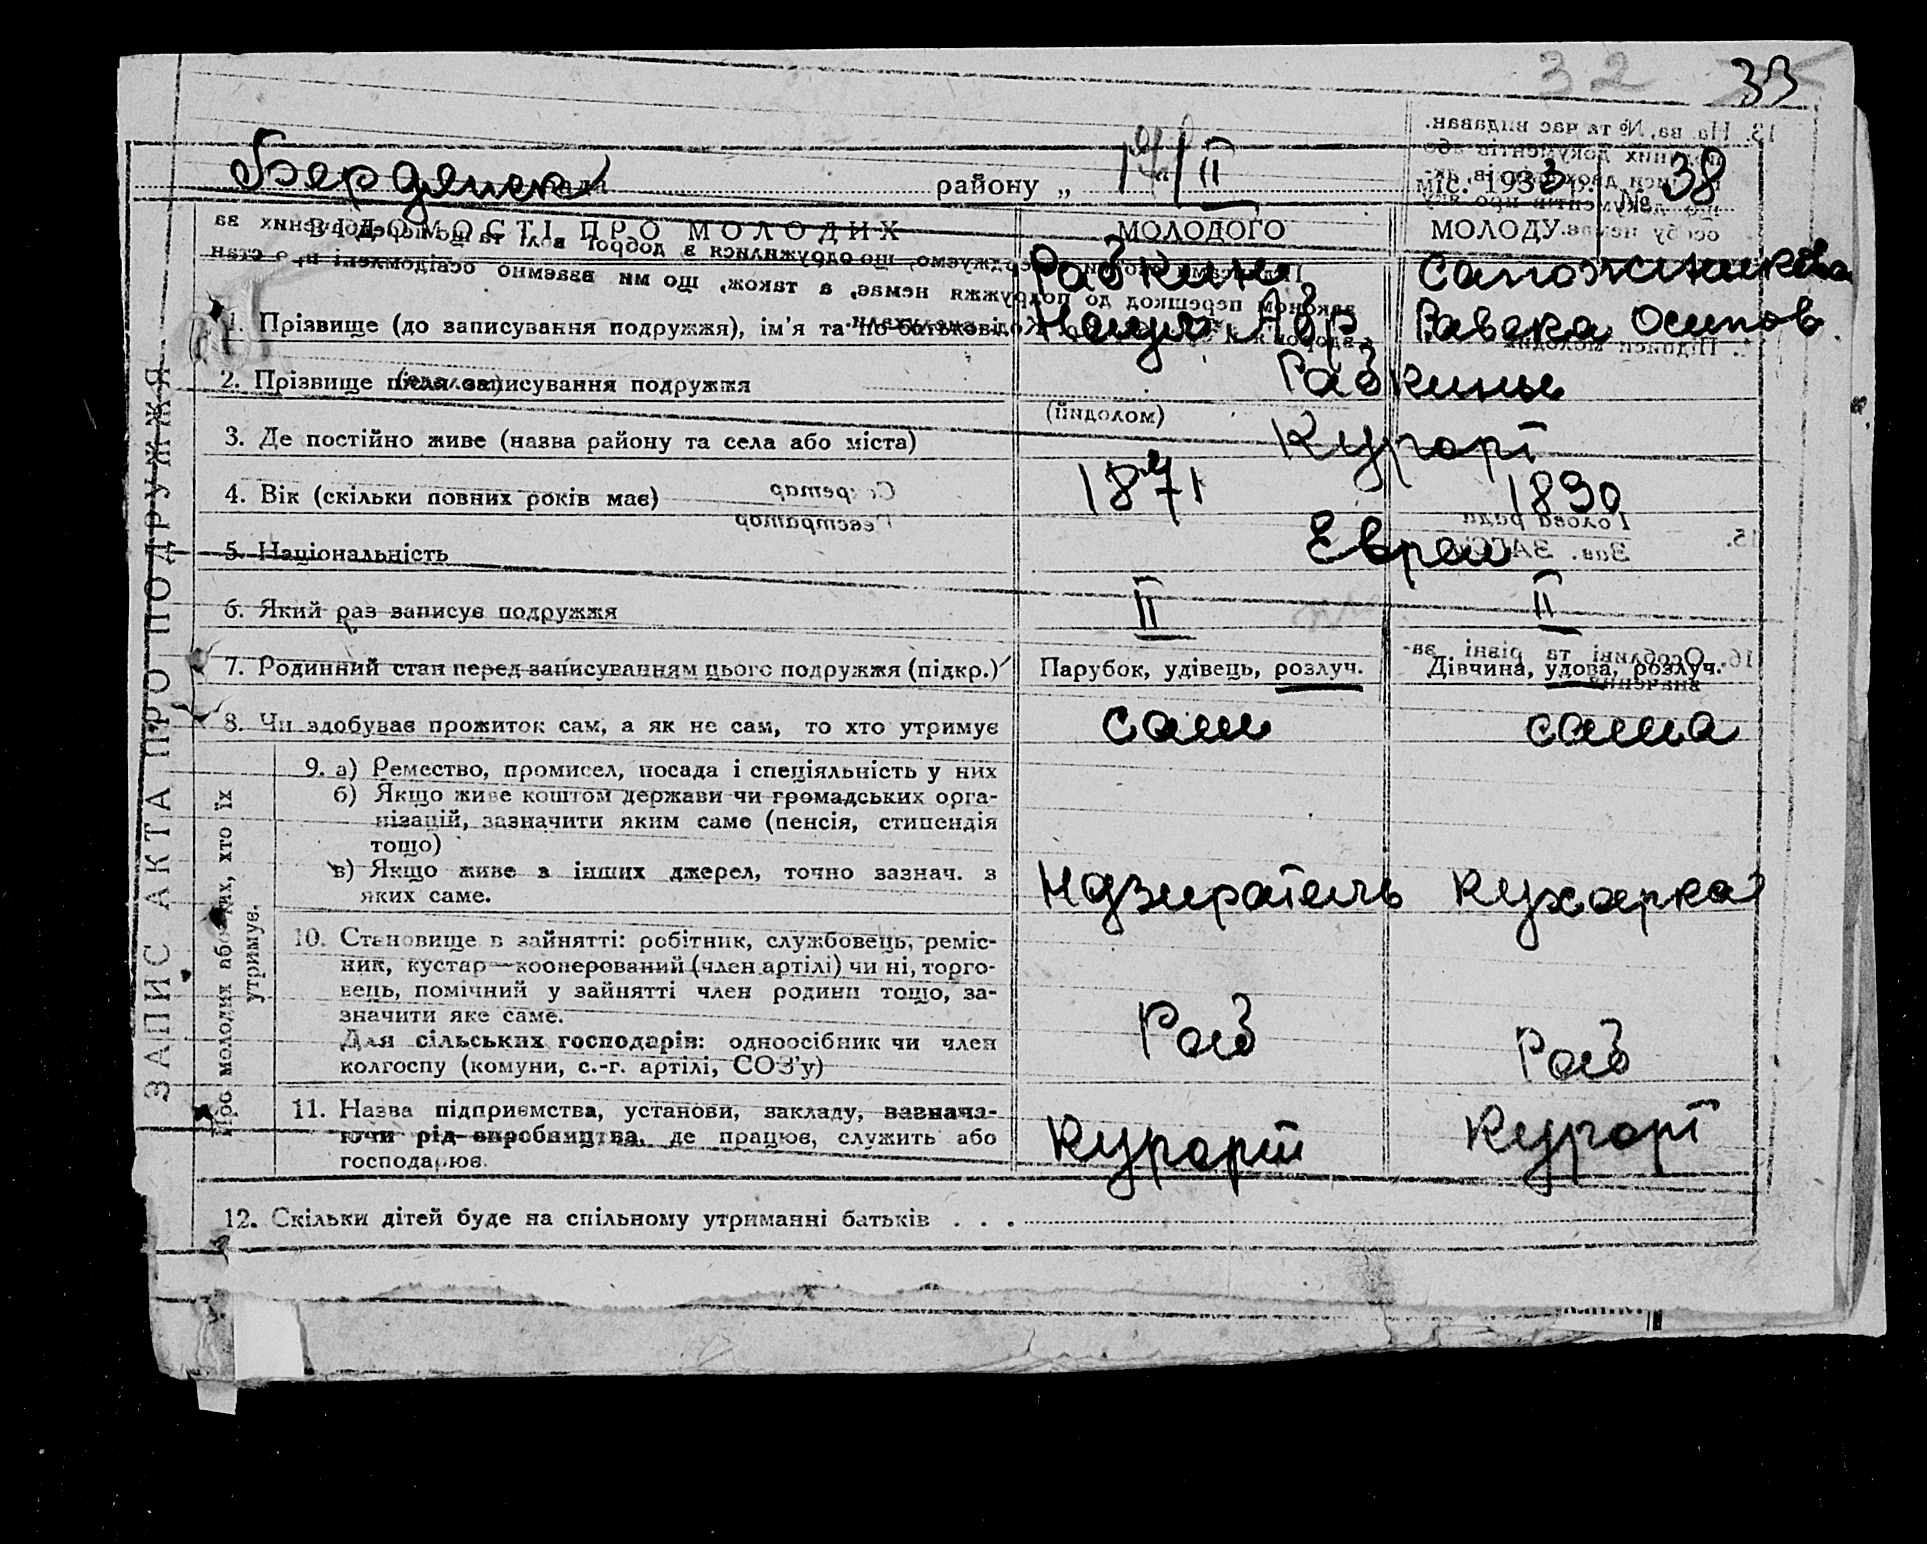 32 33
Бердянск рада району „ 14/II міс. 1933 р. № 38
ВІДОМОСТІ ПРО МОЛОДИХ МОЛОДОГО МОЛОДУ
Рабкин Сапожникова
1. Прізвище (до записування подружжя), ім'я та по батькові Абр. Равека Осипов
2. Прізвище після записування подружжя Рабкины
3. Де постійно живе (назва району та села або міста) Курорт
4. Вік (скільки повних років має) 1871 1890
5. Національність Евреи
6. Який раз записує подружжя II II
7. Родинний стан перед записуванням цього подружжя (підкр.) Парубок, удівець, розлуч. Дівчина, удова, розлуч.
8. Чи здобуває прожиток сам, а як не сам, то хто утримує сам сама
9. а) Ремество, промисел, посада і спеціяльність у них
б) Якщо живе коштом держави чи громадських орга-
нізацій, зазначити яким саме (пенсія, стипендія
тощо)
в) Якщо живе з інших джерел, точно зазнач. з
яких саме. Надзиратель кухарка
10. Становище в зайнятті: робітник, службовець, реміс-
ник, кустар—кооперований (член артілі) чи ні, торго-
вець, помічний у зайнятті член родини тощо, за-
значити яке саме. Раб Раб
Для сільських господарів: одноосібник чи член
колгоспу (комуни, с.-г. артілі, СОЗ'у)
11. Назва підприємства, установи, закладу, зазнача-
ючи рід виробництва, де працює, служить або
господарює. Курорт Курорт
12. Скільки дітей буде на спільному утриманні батьків . . .
ЗАПИС АКТА ПРО ПОДРУЖЖЯ
Про молодих або їх, хто їх
утримує.
13. Назва, № та час видаван.
14. Підписи молодих
(молодий)
Секретар
Реєстратор
15. Голова ради
Зав. ЗАГС
16. Особливі та різні за-
значення